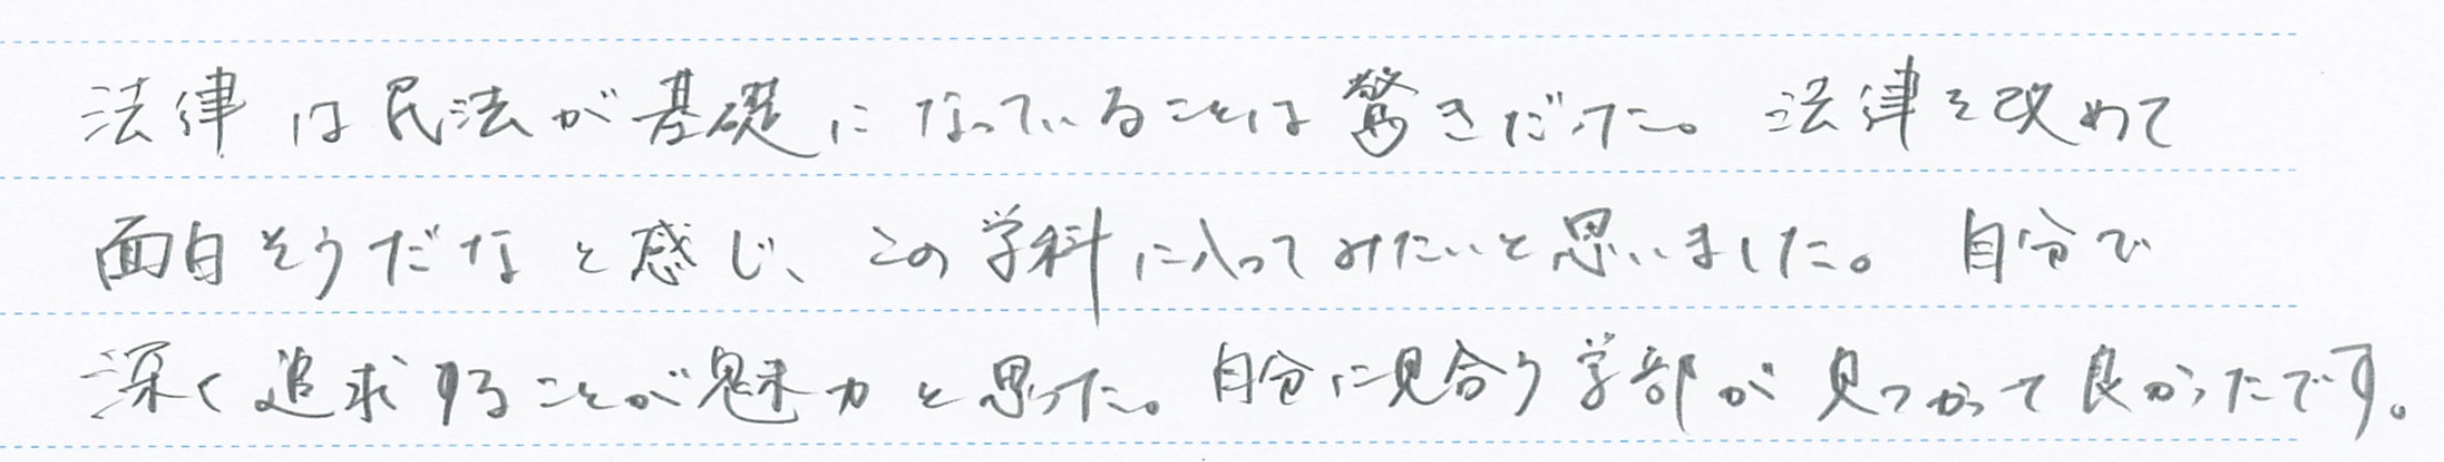 法律は民法が基礎になっていることは驚きだった。法律を改めて
面白そうだなと感じ、この学科に入ってみたいと思いました。自分で
深く追求することが魅力と思った。自分に見合う学部が見つかって良かったです。